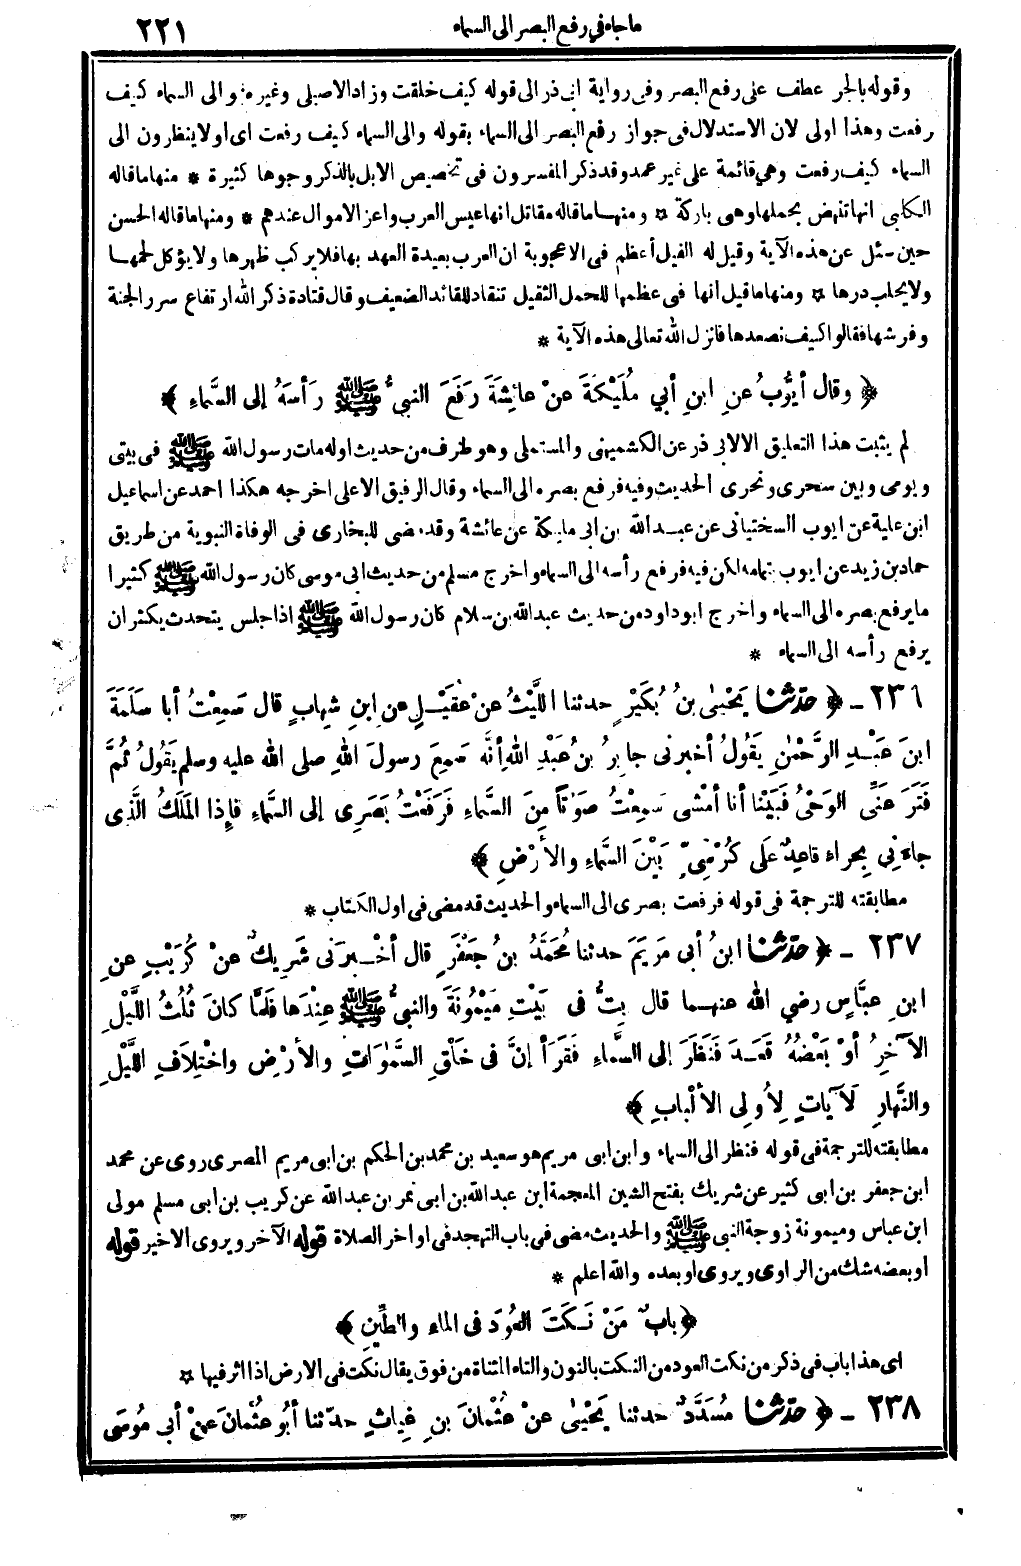 ما جاء في رفع البصر الى السماء ٢٢١
وقوله بالجر عطف على رفع البصر وفى رواية ابى ذر الى قوله كيف خلقت وزاد الاصيلى وغيره والى السماء كيف
رفعت وهذا اولى لان الاستدلال فى جواز رفع البصر الى السماء بقوله والى السماء كيف رفعت اى اولا ينظرون الى
السماء كيف رفعت وهي قائمة على غير عمد وقد ذكر المفسرون فى تخصيص الابل بالذكر وجوها كثيرة * منها ما قاله
الكلبى انها تنهض بحملها وهى باركة * ومنها ما قاله مقاتل انها عيس العرب واعز الاموال عندهم * ومنها ما قاله الحسن
حين سئل عن هذه الآية وقيل له الفيل أعظم فى الاعجوبة ان العرب بعيدة العهد بها فلا يركب ظهرها ولا يؤكل لحمها
ولا يحلب درها * ومنها ما قيل انها فى عظمها للحمل الثقيل تنقاد للقائد الضعيف وقال قتادة ذكر الله ارتفاع سرر الجنة
وفرشها فقالوا كيف نصعدها فانزل الله تعالى هذه الآية *
﴿ وقال أيُّوبُ عنِ ابنِ أبي مُلَيْكَةَ عنْ عائِشَةَ رَفَعَ النبيُّ ﷺ رَأسَهُ إلى السَّماءِ ﴾
لم يثبت هذا التعليق الا لابى ذر عن الكشميهنى والمستملى وهو طرف من حديث اوله مات رسول الله ﷺ فى بيتى
ويومى وبين سحرى ونحرى الحديث وفيه فرفع بصره الى السماء وقال الرفيق الاعلى اخرجه هكذا احمد عن اسماعيل
ابن علية عن ايوب السختيانى عن عبد الله بن ابى مليكة عن عائشة وقد مضى للبخارى فى الوفاة النبوية من طريق
حماد بن زيد عن ايوب بتمامه لكن فيه فرفع رأسه الى السماء واخرج مسلم من حديث ابى موسى كان رسول الله ﷺ كثيرا
ما يرفع بصره الى السماء واخرج ابو داود من حديث عبد الله بن سلام كان رسول الله ﷺ اذا جلس يتحدث يكثر ان
يرفع رأسه الى السماء *
٢٣٦ - ﴿ حدّثنا يَحْيَى بنُ بُكَيْرٍ حدثنا اللَّيْثُ عنْ عُقَيْلٍ عنِ ابنِ شِهابٍ قال سَمِعْتُ أبا سَلَمَةَ
ابنَ عَبْدِ الرَّحْمنِ يَقُولُ أخبرنى جابِرُ بنُ عَبْدِ اللهِ أنَّه سَمِعَ رسولَ اللهِ صلى الله عليه وسلم يَقُولُ ثُمَّ
فَتَرَ عَنِّى الوَحْىُ فَبَيْنا أنا أمْشى سَمِعْتُ صَوْتاً مِنَ السَّماءِ فَرَفَعْتُ بَصَرِى إلى السَّماءِ فإِذا المَلَكُ الَّذى
جاءَنِي بِحراءٍ قاعِدٌ عَلَى كُرْسِىٍّ بَيْنَ السَّماءِ والأرْضِ ﴾
مطابقته للترجمة فى قوله فرفعت بصرى الى السماء والحديث قد مضى فى اول الكتاب *
٢٣٧ - ﴿ حدّثنا ابنُ أبى مَرْيَمَ حدثنا مُحَمَّدُ بنُ جَعْفَرٍ قال أخْبَرَنى شَرِيكٌ عنْ كُرَيْبٍ عنِ
ابنِ عبَّاسٍ رضي الله عنهما قال بِتُّ فى بَيْتِ مَيْمُونَةَ والنبيُّ ﷺ عِنْدَها فَلَمَّا كانَ ثُلُثُ اللَّيْلِ
الآخِرُ أوْ بَعْضُهُ قَعَدَ فَنَظَرَ إلى السَّماءِ فَقَرَأ إنَّ فى خَلْقِ السَّمٰوَاتِ والأرْضِ واخْتِلاَفِ اللَّيْلِ
والنَّهارِ لَآياتٍ لِأُولِى الألْبابِ ﴾
مطابقته للترجمة فى قوله فنظر الى السماء وابن ابى مريم هو سعيد بن محمد بن الحكم بن ابى مريم المصرى روى عن محمد
ابن جعفر بن ابى كثير عن شريك بفتح الشين المعجمة ابن عبد الله بن ابى نمر بن عبد الله عن كريب بن ابى مسلم مولى
ابن عباس وميمونة زوجة النبى ﷺ والحديث مضى فى باب التهجد فى اواخر الصلاة قوله الآخر ويروى الاخير قوله
او بعضه شك من الراوى ويروى او بعده والله اعلم *
﴿ بابُ مَنْ نَكَتَ العُودَ فى الماءِ والطِّينِ ﴾
اى هذا باب فى ذكر من نكت العود من النكت بالنون والتاء المثناة من فوق يقال نكت فى الارض اذا اثر فيها *
٢٣٨ - ﴿ حدّثنا مُسَدَّدٌ حدثنا يَحْيَى عنْ عُثْمانَ بنِ غِياثٍ حدّثنا أبُو عُثْمانَ عنْ أبى مُوسَى